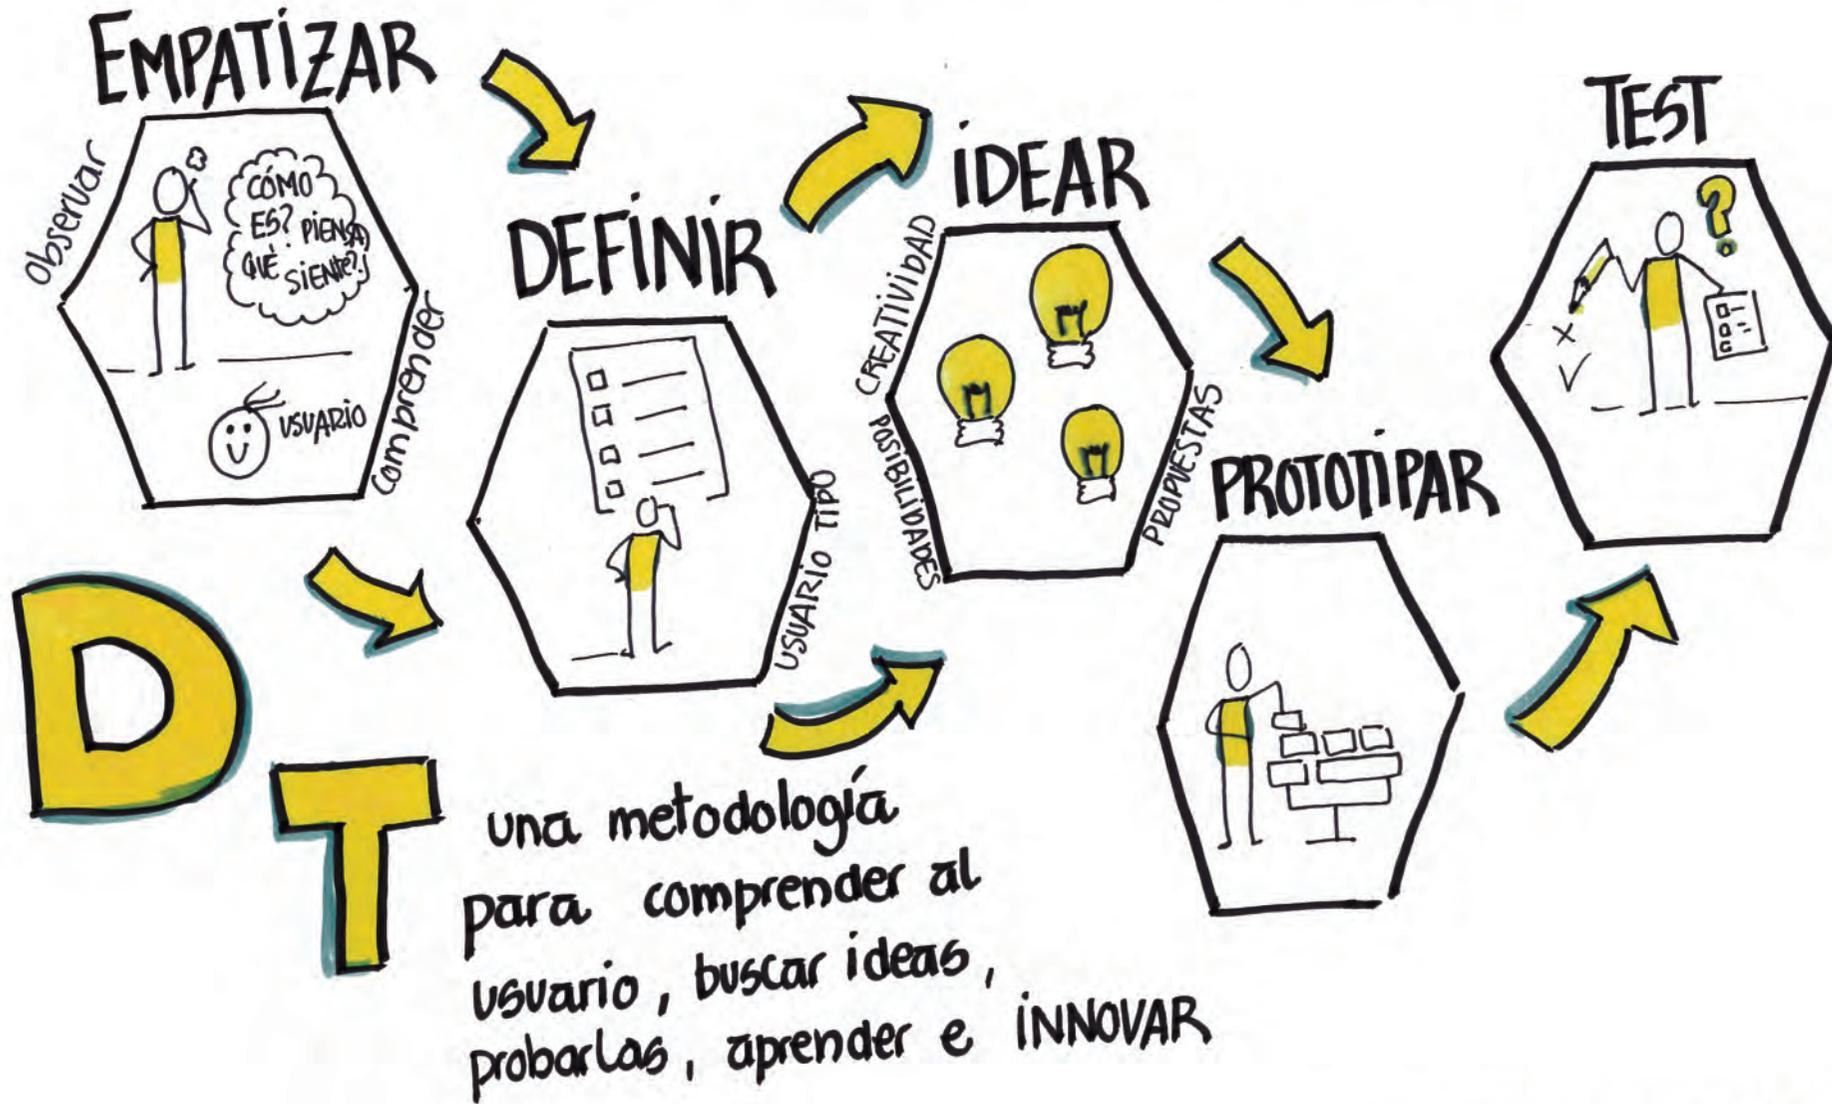 EMPATIZAR
Observar
CÓMO
ES? PIENSA,
QUÉ SIENTE?
USUARIO
Comprender
DEFINIR
USUARIO TIPO
IDEAR
CREATIVIDAD
POSIBILIDADES
PROPUESTAS
PROTOTIPAR
TEST
?
DT
una metodología
para comprender al
usuario, buscar ideas,
probarlas, aprender e INNOVAR